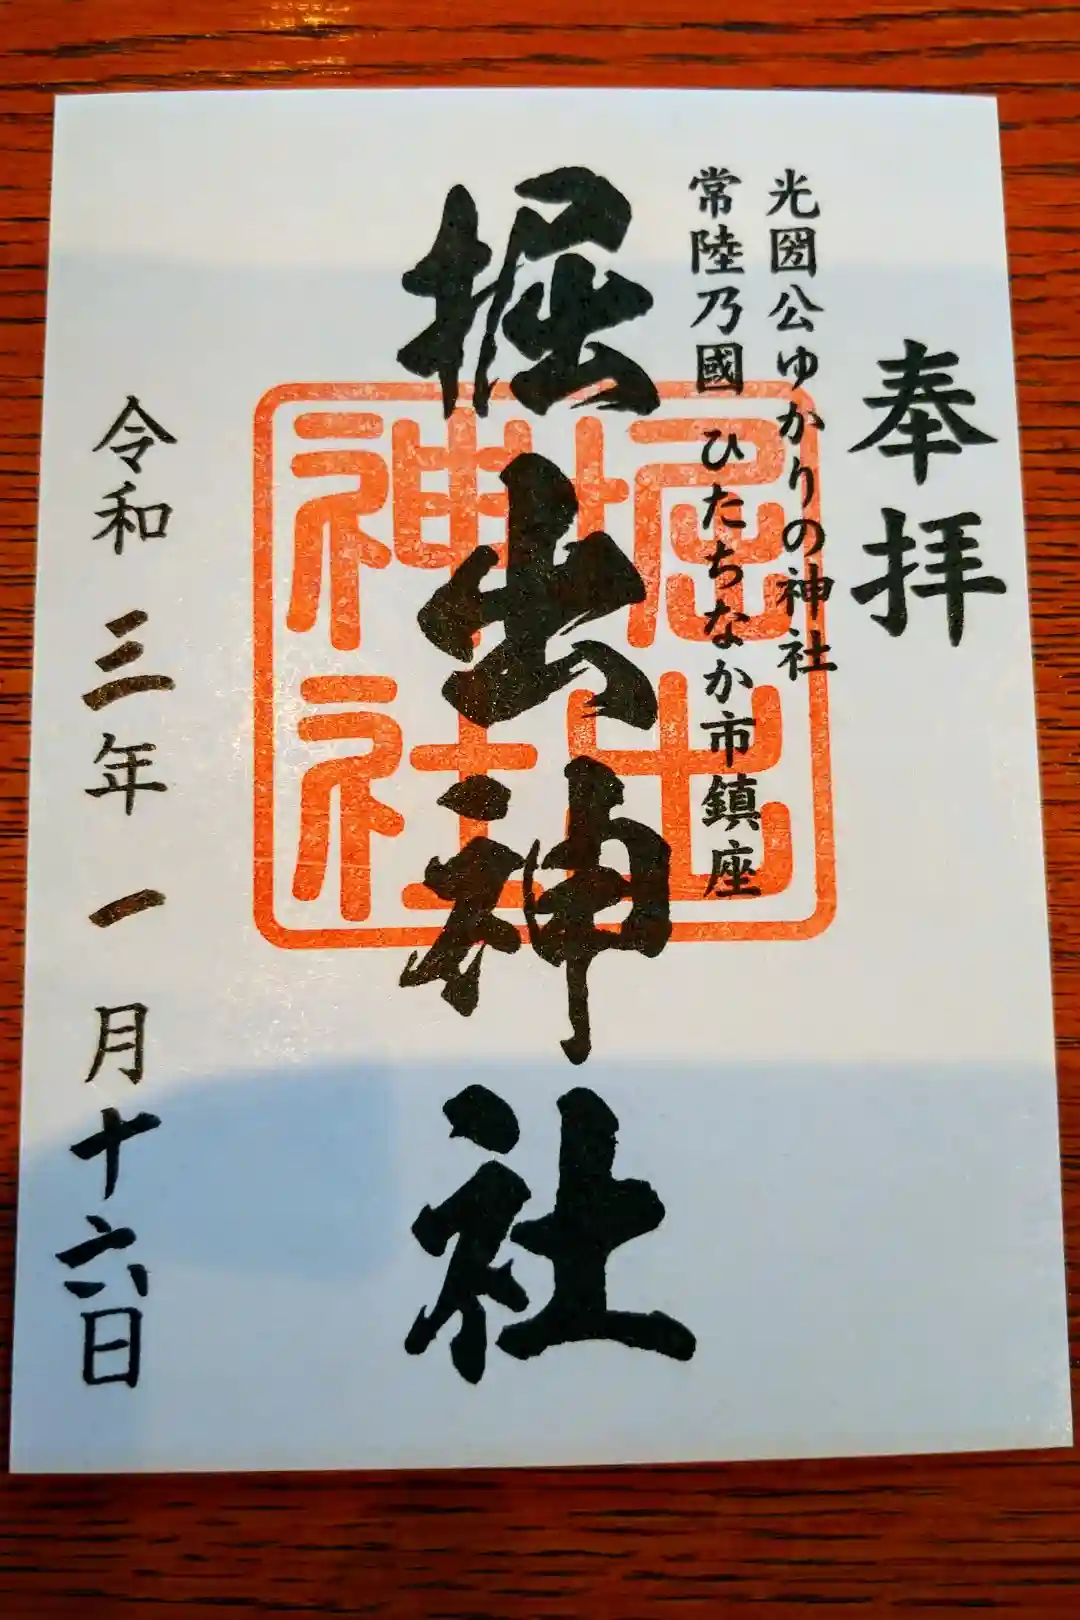 奉拝
光圀公ゆかりの神社
常陸乃國 ひたちなか市鎮座
掘出神社
堀出
神社
令和 三年 一月十六日